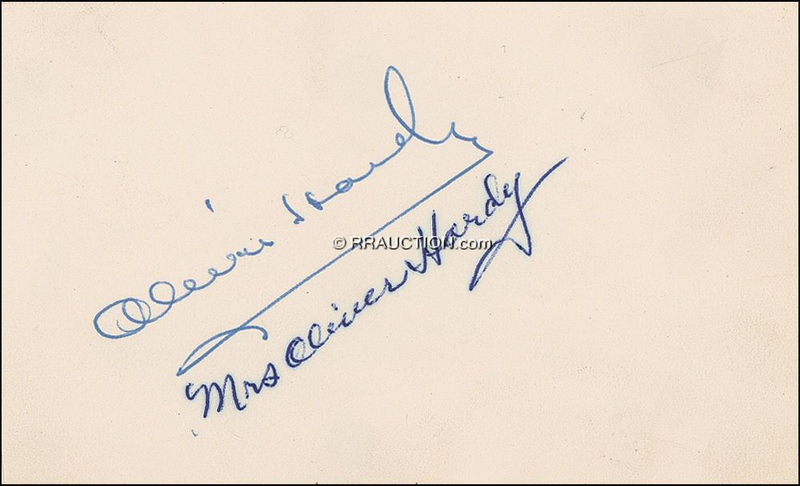 Oliver Hardy
© RRAUCTION.com
Mrs Oliver Hardy